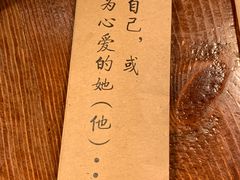 自己，或
为心爱的她（他）•••